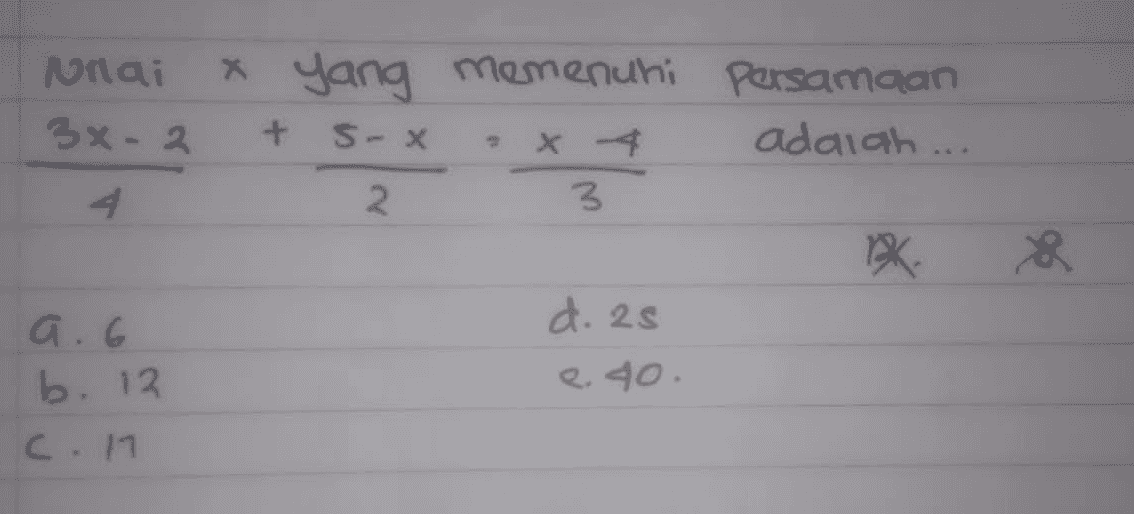 Nilai x yang memenuhi Persamaan
3x - 2 + 5 - x = x - 4 adalah ...
4 2 3
a. 6 d. 25
b. 12 e. 40.
c. 17